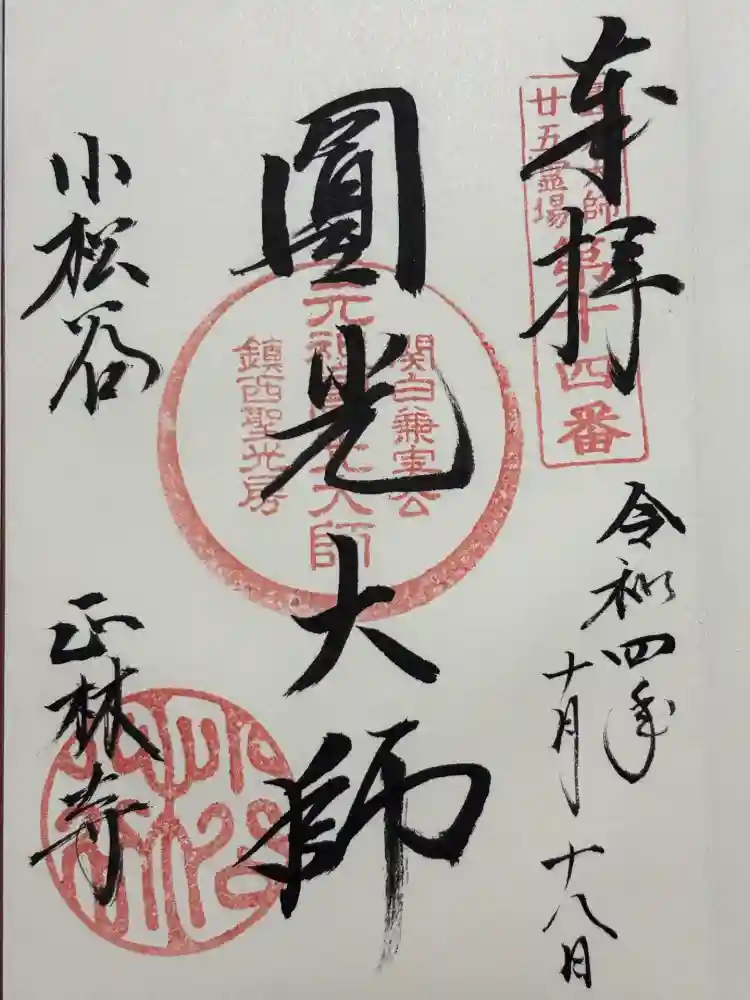 奉拝
師
廿五霊場
第十四番
令和四年
十月十八日
圓光大師
関白兼実公
元祖
大師
鎮西聖光房
小松谷
正林寺